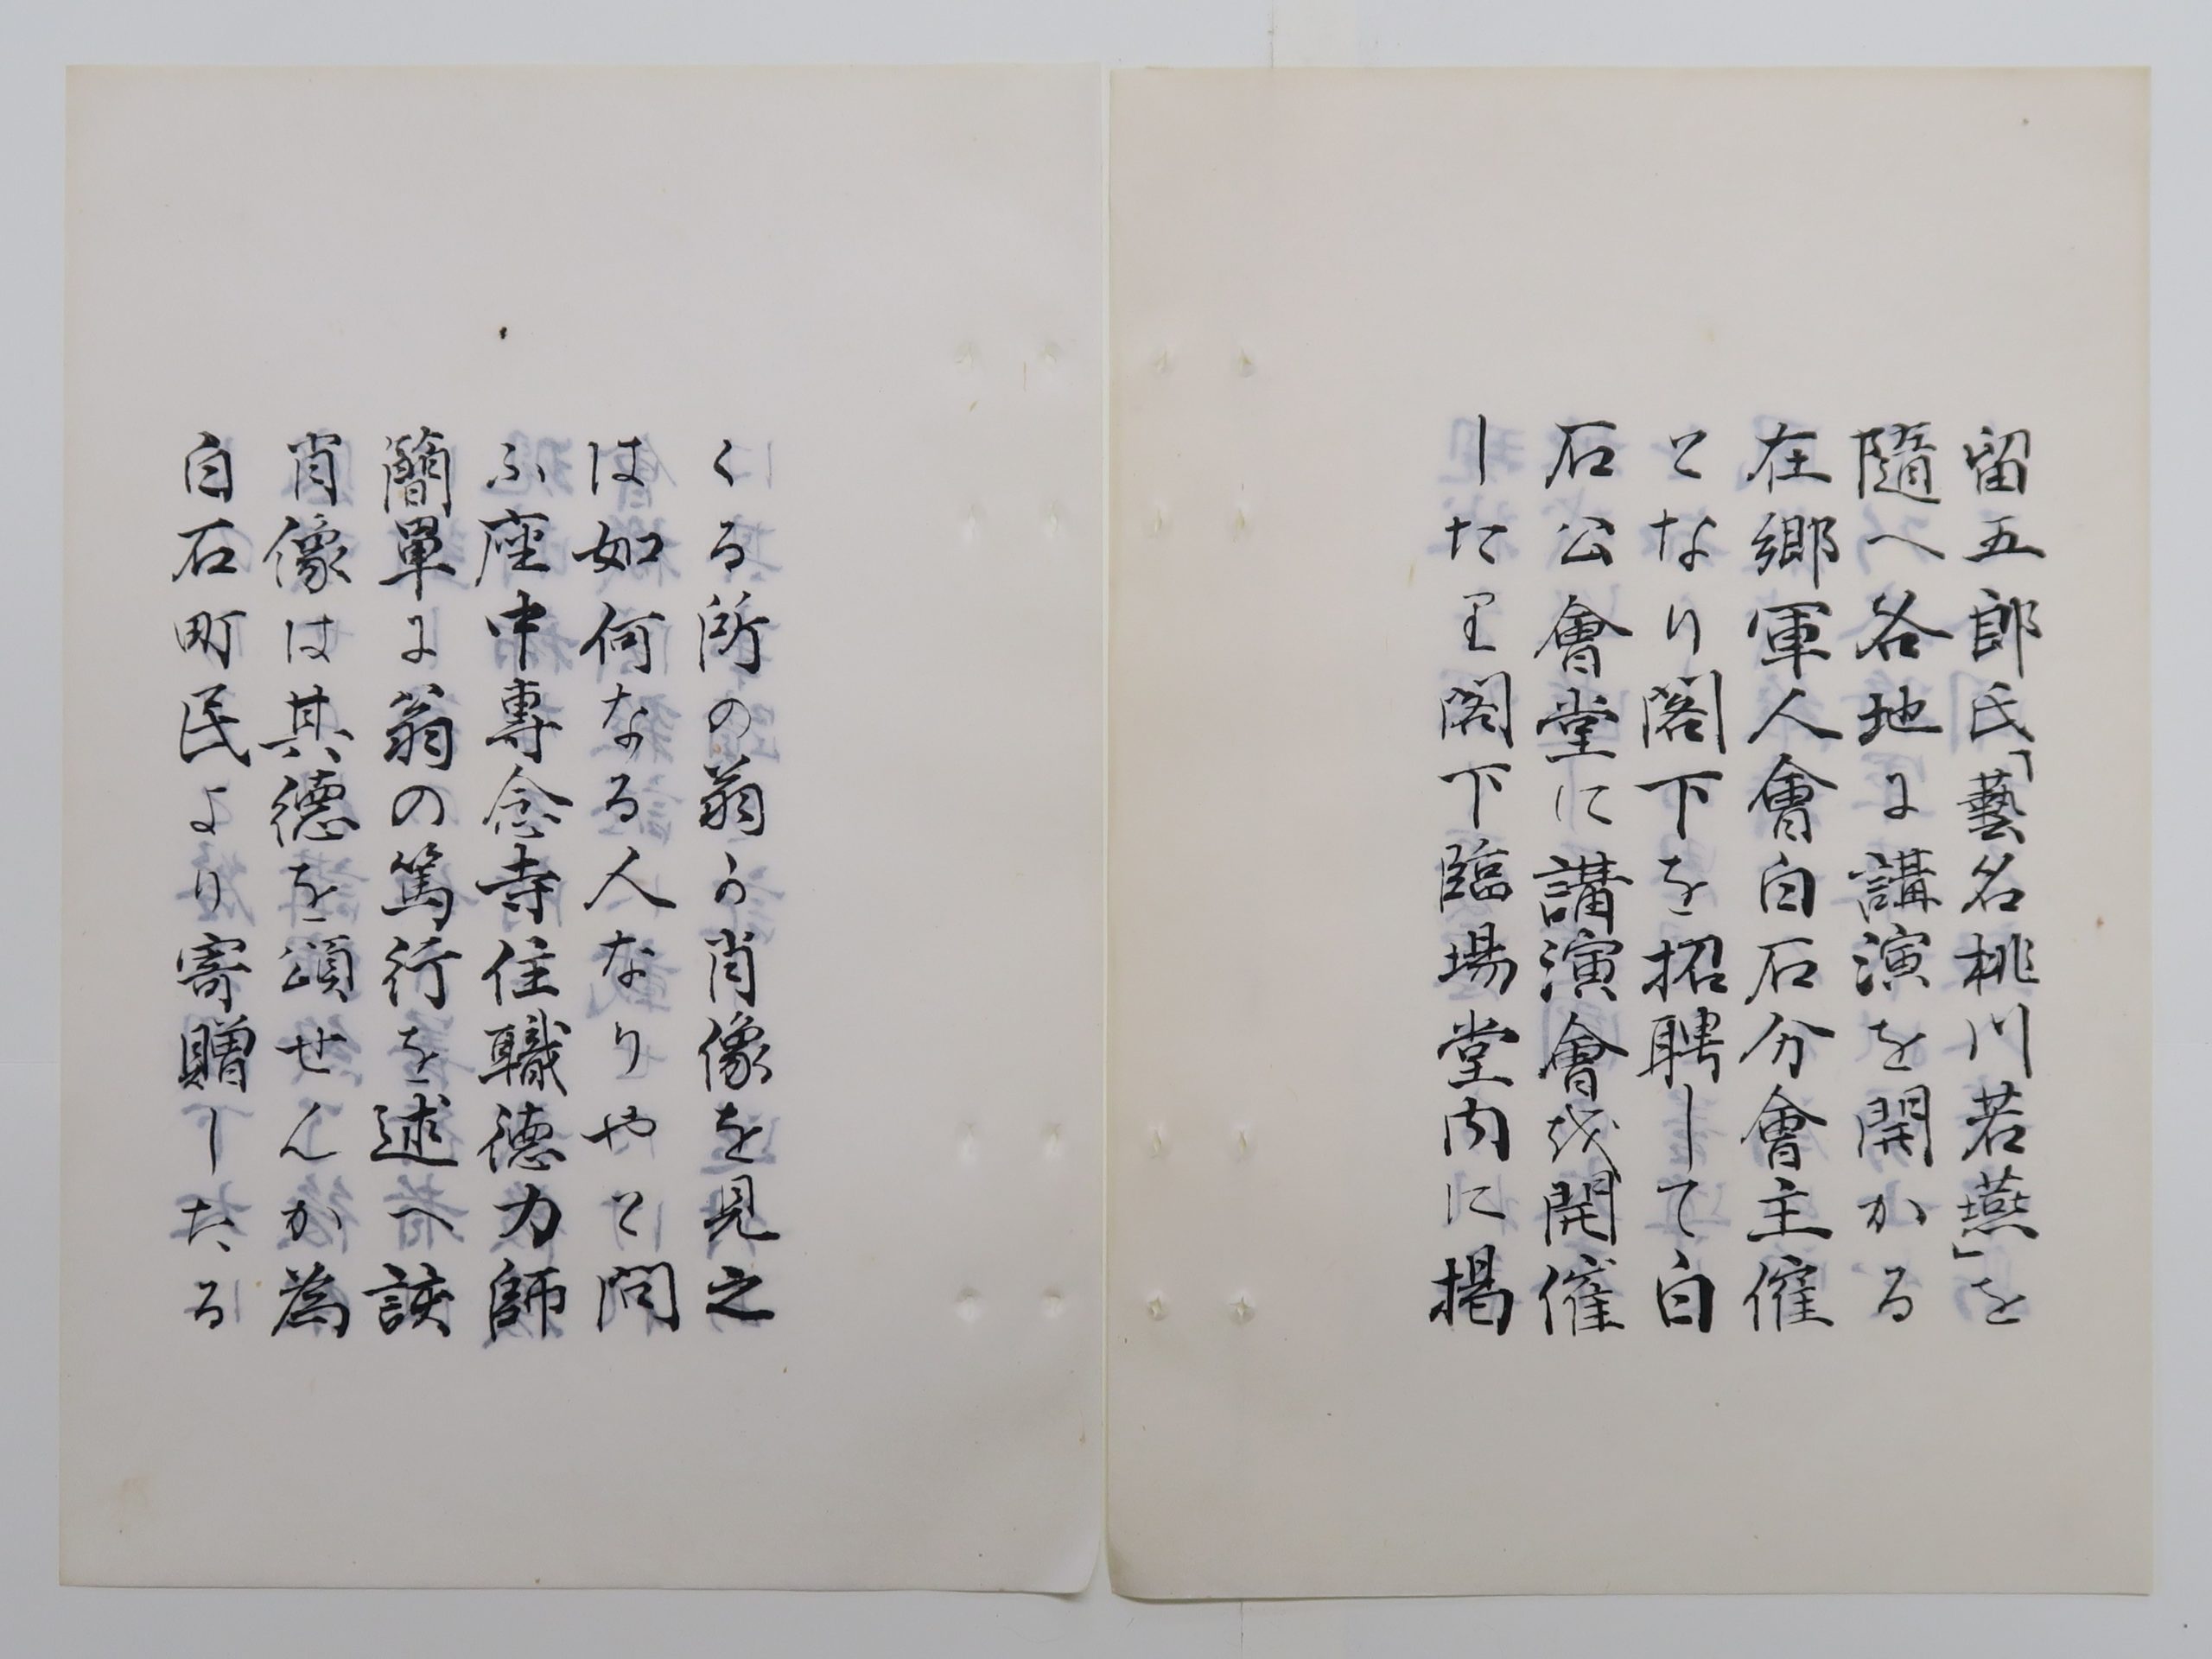 留五郎氏「藝名桃川若燕」を
隨へ各地に講演を開かる
在郷軍人會白石分會主催
となり閣下を招聘して白
石公會堂に講演會を開催
したり閣下臨場堂内に掲
くる所の翁の肖像を見之
は如何なる人なりやと問
ふ座中專念寺住職德力師
簡單に翁の篤行を述へ該
肖像は其德を頌せんか為
白石町民より寄贈したる